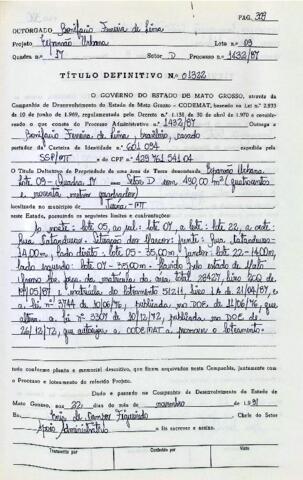 PAG. 323
OUTORGADO Bonifácio Ferreira de Lima
Projeto Expansão Urbana Lote n.º 09
Quadra n.º 17 Setor D Processo n.º 1432/87
TÍTULO DEFINITIVO N.º 01322
O GOVERNO DO ESTADO DE MATO GROSSO, através da
Companhia de Desenvolvimento do Estado de Mato Grosso - CODEMAT, baseado na Lei n.º 2.933
de 10 de junho de 1.969, regulamentada pelo Decreto n.º 1.138 de 30 de abril de 1.970 e considerando
o que consta do Processo Administrativo n.º 1432/87 Outorga a
Bonifácio Ferreira de Lima, brasileiro, casado
portador da Carteira de Identidade n.º 601 094 expedida pela
SSP/MT e do CPF n.º 429 761 541 04
O Título Definitivo de Propriedade de uma área de Terra denominada Expansão Urbana.
Lote 09 - Quadra 17 - Setor D com 490,00 m² (quatrocentos
e noventa metros quadrados)
localizada no município de Juína - MT
neste Estado, possuindo os seguintes limites e confrontações:
Ao norte: lote 05, ao sul: lote 07, a leste: lote 22, a oeste:
Rua
14,00m, lado direito: lote 05 - 35,00m, fundos: lote 22 - 14,00m,
lado esquerdo: lote 07 - 35,00m. Havido pelo estado de Mato
Grosso por força da matrícula da área total 28427, livro
14/05/87 e matrícula do loteamento 51211, livro 1A de 21/04/87, e
a lei nº 3744 de 10/06/76, publicada no DOE de 11/06/76, que
altera a lei nº 3307 de 10/12/72, publicada no DOE de
26/12/72, que autoriza a CODEMAT a promover o loteamento.
tudo conforme planta e memorial descritivo, que ficam arquivados nesta Companhia, juntamente com
o Processo e loteamento do referido Projeto.
Dado e passado na Companhia de Desenvolvimento do Estado de
Mato Grosso, aos 22 dias do mês de novembro de 1991
Eu, Figueiredo Chefe do Setor
Apoio Administrativo o fiz escrever e assino.
Transcrito por Conferido por Visto